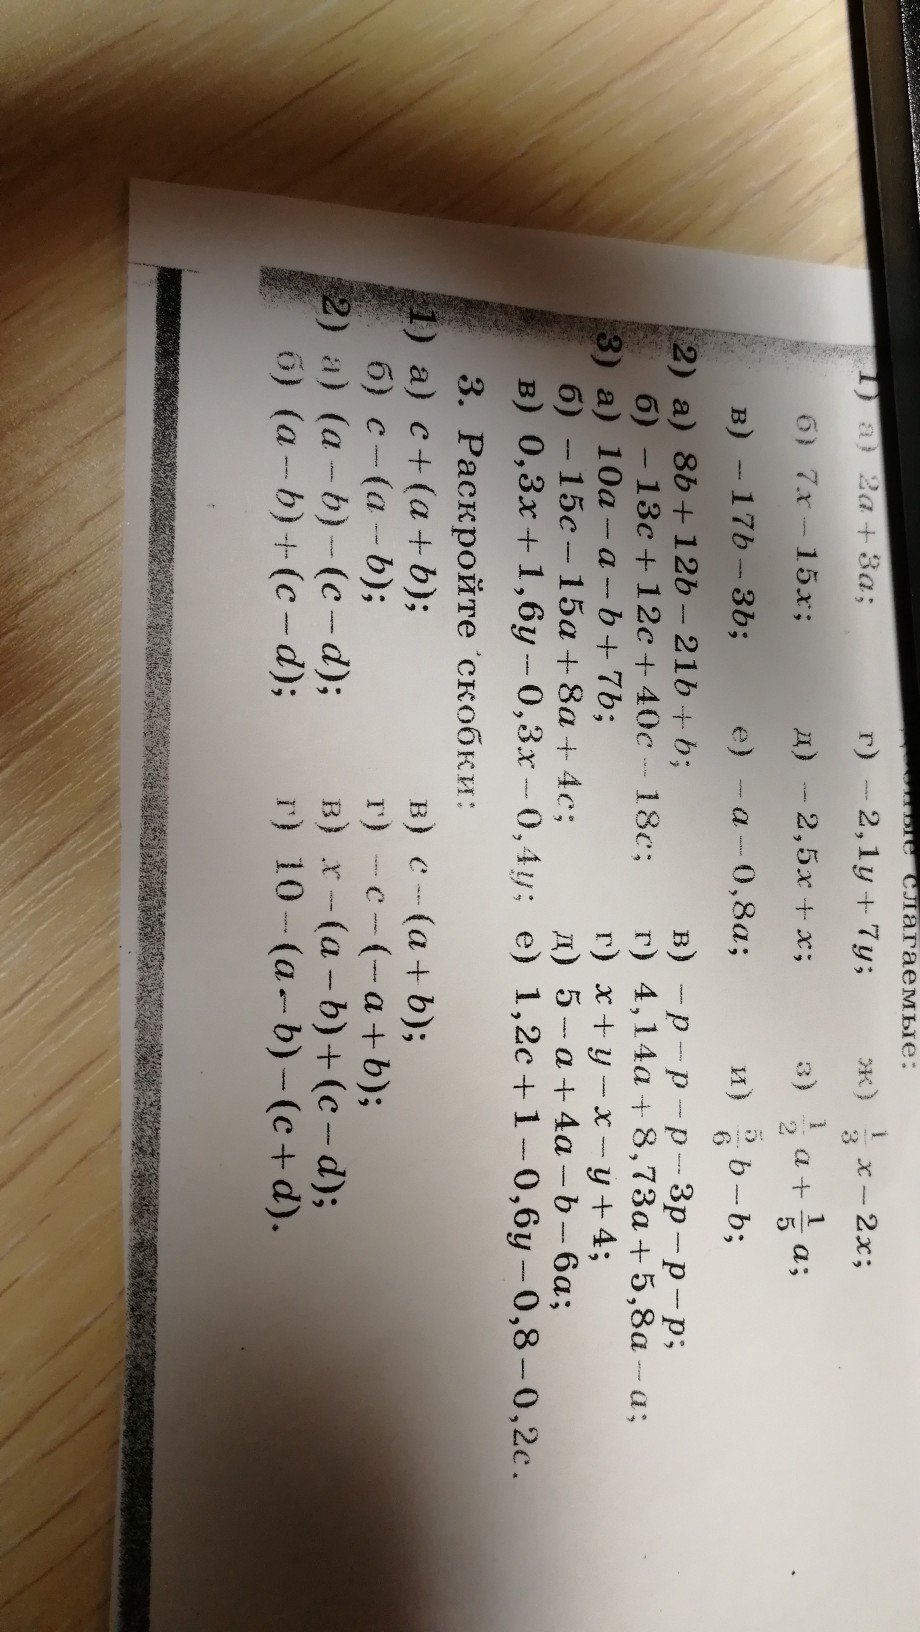 слагаемые:
1) а) 2a+3a; г) −2,1y+7y; ж) 1/3 x−2x;
б) 7x−15x; д) −2,5x+x; з) 1/2 a+1/5 a;
в) −17b−3b; е) −a−0,8a; и) 5/6 b−b;
2) а) 8b+12b−21b+b; в) −p−p−p−3p−p−p;
б) −13c+12c+40c−18c; г) 4,14a+8,73a+5,8a−a;
3) а) 10a−a−b+7b; г) x+y−x−y+4;
б) −15c−15a+8a+4c; д) 5−a+4a−b−6a;
в) 0,3x+1,6y−0,3x−0,4y; е) 1,2c+1−0,6y−0,8−0,2c.
3. Раскройте скобки:
1) а) c+(a+b); в) c−(a+b);
б) c−(a−b); г) −c−(−a+b);
2) а) (a−b)−(c−d); в) x−(a−b)+(c−d);
б) (a−b)+(c−d); г) 10−(a−b)−(c+d).